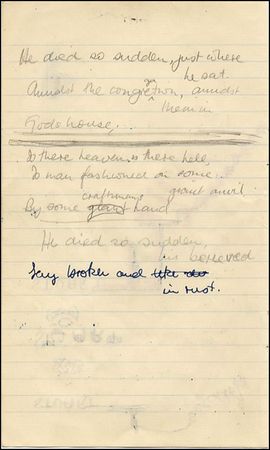 He died so sudden, just where
he sat.
Amidst the congregation, amidst
them in
Gods house.
Is there heaven, is there hell,
Is man fashioned on some
craftsmans giant anvil
By some giant hand
He died so sudden,
bereaved
Lay broken and like do
in rust.